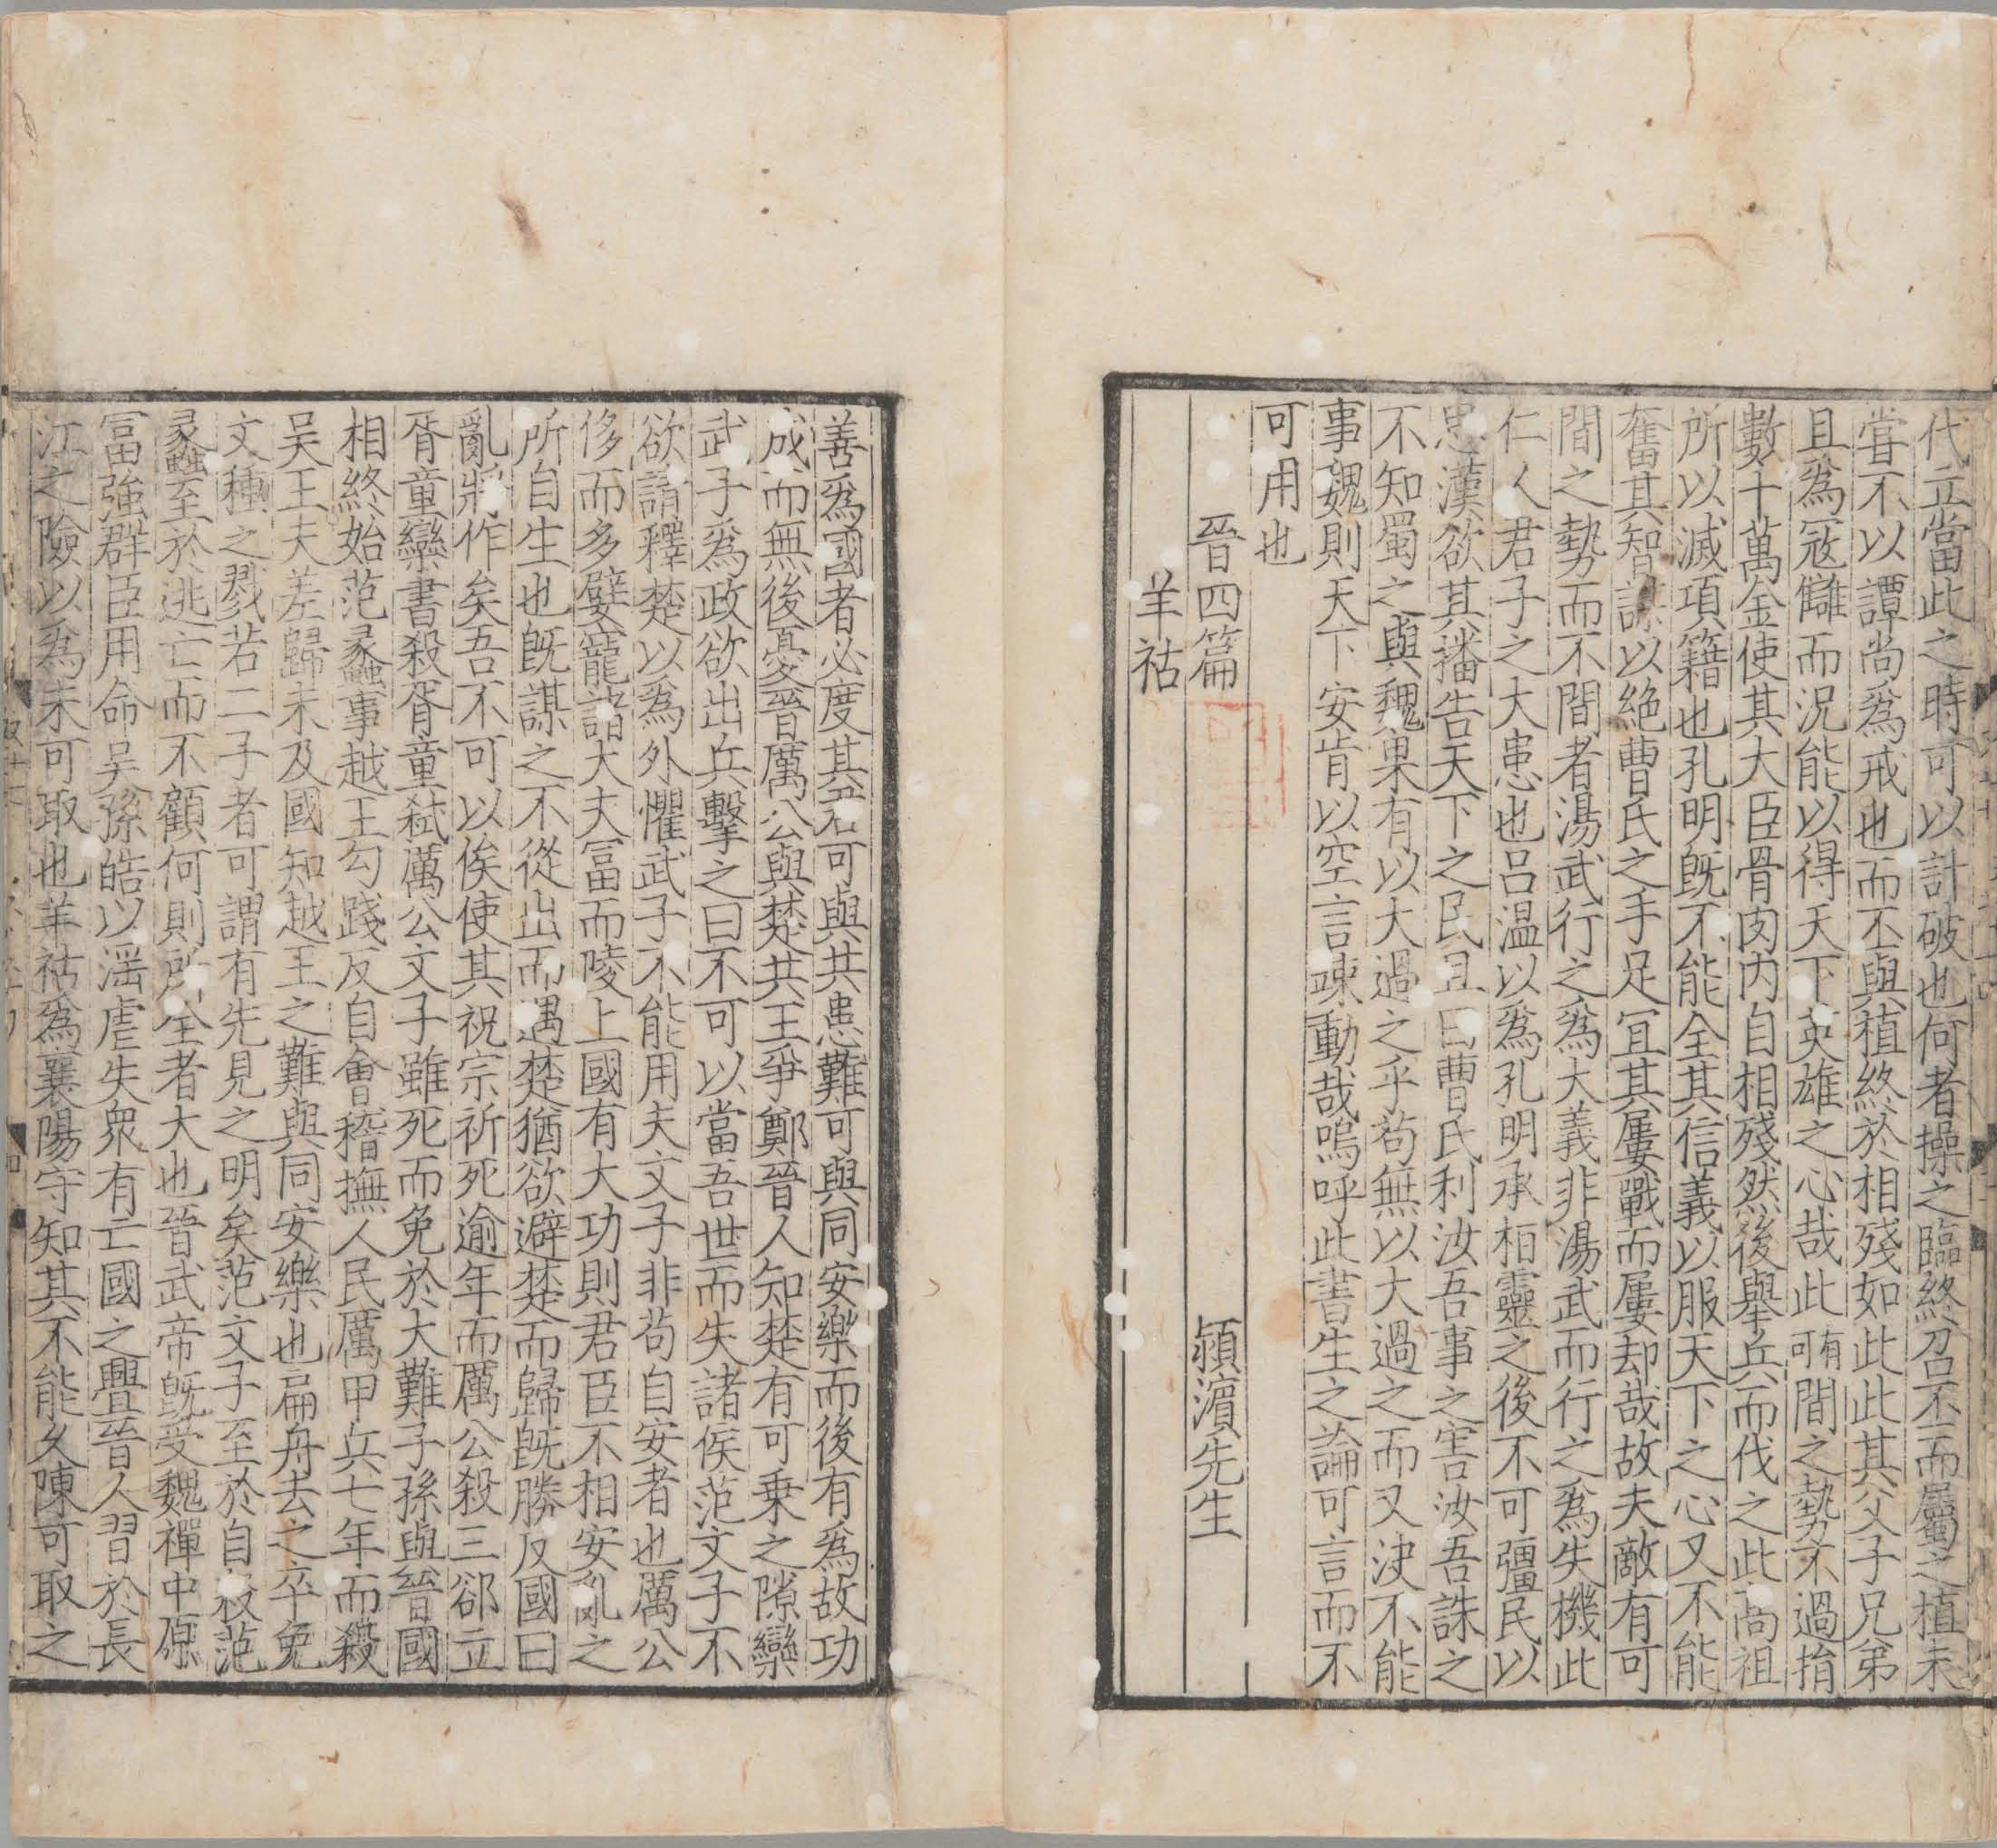 代立當此之時可以計破也何者操之臨終召丕而屬之植未
嘗不以譚尚爲戒也而丕與植終於相殘如此此其父子兄弟
且爲寇讎而況能以得天下英雄之心哉此有可間之勢不過捐
數十萬金使其大臣骨肉内自相殘然後舉兵而伐之此高祖
所以滅項籍也孔明旣不能全其信義以服天下之心又不能
奮其智謀以絶曹氏之手足宜其屢戰而屢却哉故夫敵有可
間之勢而不間者湯武行之爲大義非湯武而行之爲失機此
仁人君子之大患也吕温以爲孔明承桓靈之後不可彊民以
思漢欲其播告天下之民且曰曹氏利汝吾事之害汝吾誅之
不知蜀之與魏果有以大過之乎苟無以大過之而又決不能
事魏則天下安肯以空言竦動哉嗚呼此書生之論可言而不
可用也
晉四篇 潁濵先生
羊祜
善爲國者必度其君可與共患難可與同安樂而後有爲故功
成而無後憂晉厲公與楚共王爭鄭晉人知楚有可乗之隙欒
武子爲政欲出兵擊之曰不可以當吾世而失諸侯范文子不
欲謂釋楚以爲外懼武子不能用夫文子非苟自安者也厲公
侈而多嬖寵諸大夫冨而陵上國有大功則君臣不相安亂之
所自生也旣謀之不從出而遇楚猶欲避楚而歸旣勝反國曰
亂將作矣吾不可以俟使其祝宗祈死逾年而厲公殺三郤立
胥童欒書殺胥童弑厲公文子雖死而免於大難子孫與晉國
相終始范蠡事越王勾踐反自會稽撫人民厲甲兵七年而殺
吴王夫差歸未及國知越王之難與同安樂也扁舟去之卒免
文種之戮若二子者可謂有先見之明矣范文子至於自殺范
蠡至於逃亡而不顧何則所全者大也晉武帝旣受魏禪中原
冨強群臣用命吴孫皓以滛虐失衆有亡國之舋晉人習於長
江之險以爲未可取也羊祜爲襄陽守知其不能久陳可取之